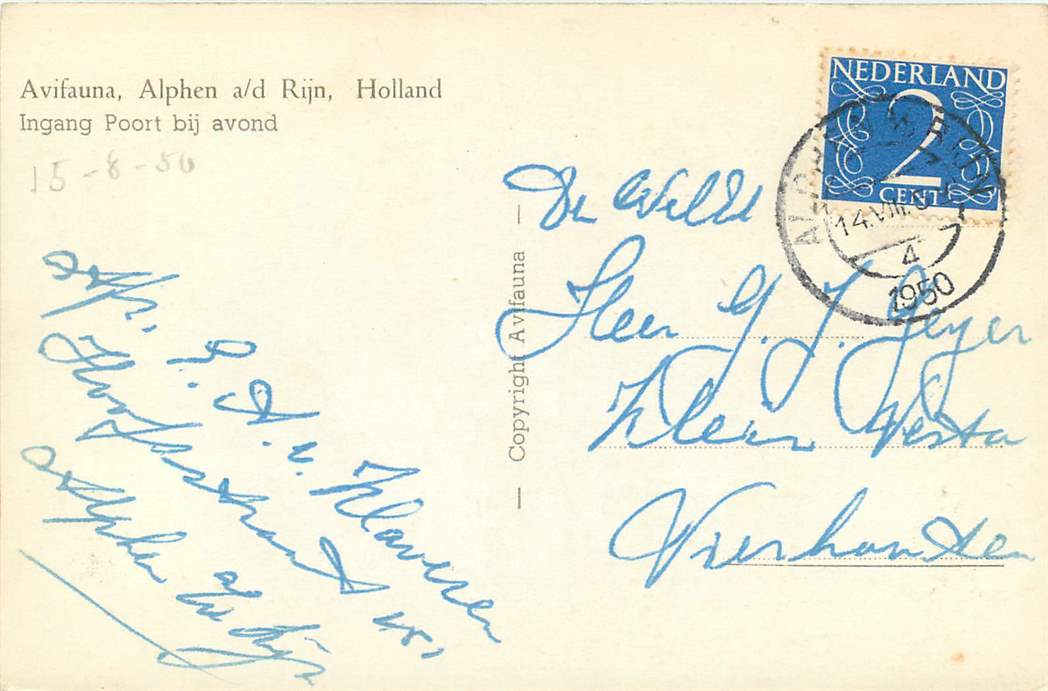 Avifauna, Alphen a/d Rijn, Holland
Ingang Poort bij avond
15-8-50
Afz. G. A. v. Klaveren
Hooftstraat
Alphen a/d Rijn
Copyright Avifauna
NEDERLAND
2
CENT
14.VIII.5
4
1950
De Weled
Heer G. J. Geyer
Klein Vesta
Vierhouten